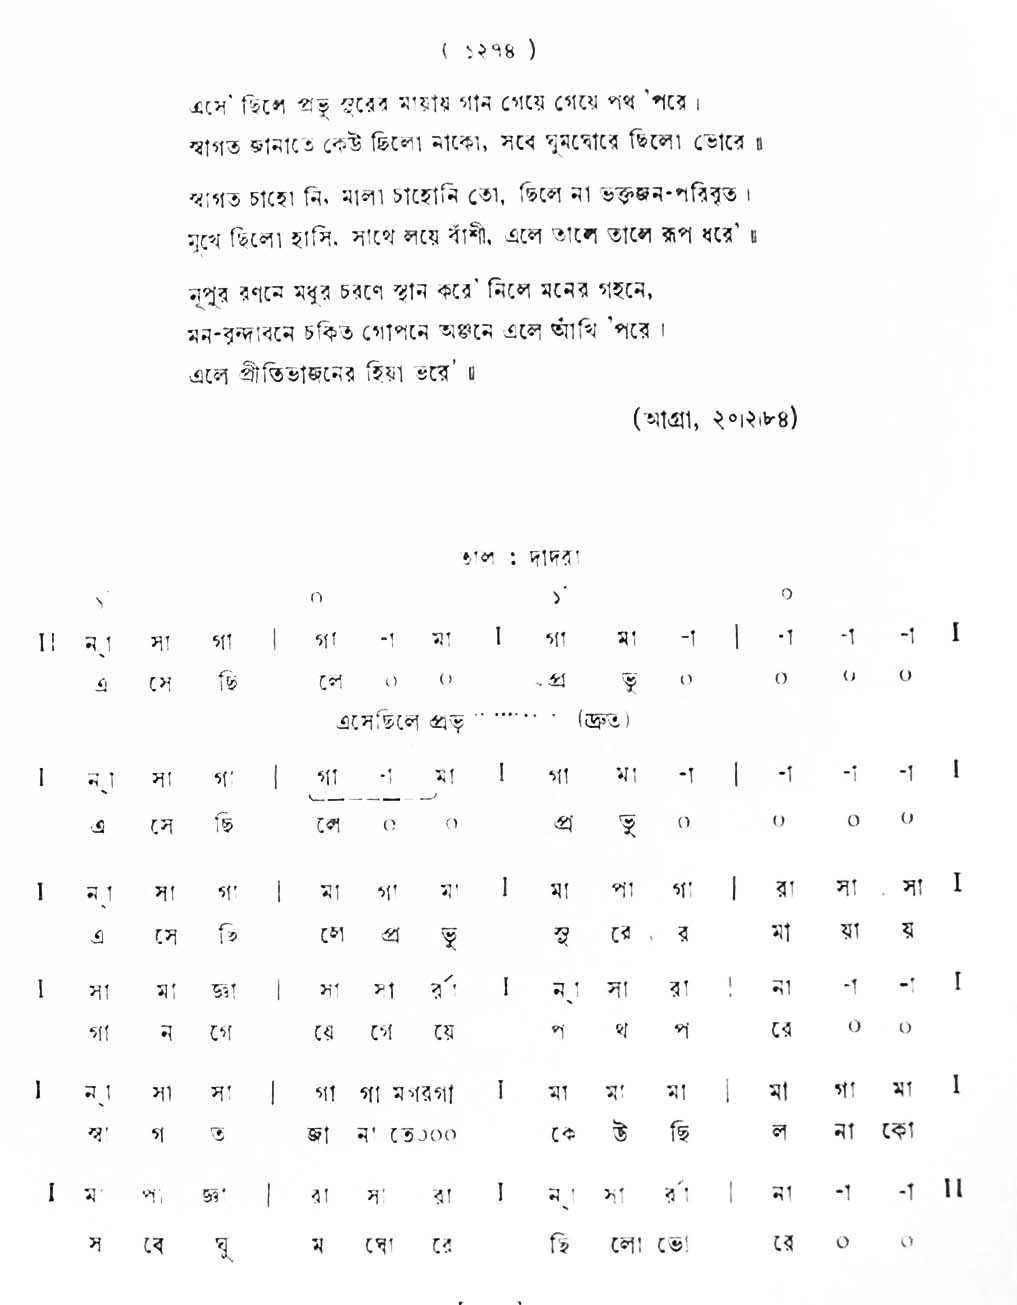 ( ১২৭৪ )
এসে' ছিলে প্রভু সুরের মায়ায় গান গেয়ে গেয়ে পথ 'পরে ।
স্বাগত জানাতে কেউ ছিলো নাকো, সবে ঘুমঘোরে ছিলো ভোরে ॥
স্বাগত চাহো নি, মালা চাহোনি তো, ছিলে না ভক্তজন-পরিবৃত ।
মুখে ছিলো হাসি, সাথে লয়ে বাঁশী, এলে তালে তালে রূপ ধরে' ॥
নূপুর রণনে মধুর চরণে স্থান করে' নিলে মনের গহনে,
মন-বৃন্দাবনে চকিত গোপনে অঞ্জনে এলে আঁখি 'পরে ।
এলে প্রীতিভাজনের হিয়া ভরে' ॥
(আগ্রা, ২০।২।৮৪)
তাল : দাদরা
১´ ০ ১´ ০
II ন্‌া সা গা | গা -া মা I গা মা -া | -া -া -া I
এ সে ছি লে ০ ০ প্র ভু ০ ০ ০ ০
এসেছিলে প্রভু ·········· (দ্রুত)
I ন্‌া সা গা | গা -া মা I গা মা -া | -া -া -া I
এ সে ছি লে ০ ০ প্র ভু ০ ০ ০ ০
I ন্‌া সা গা | মা গা মা I মা পা গা | রা সা সা I
এ সে ছি লে প্র ভু সু রে র মা য়া য়
I সা মা জ্ঞা | সা সা র্রা I ন্‌া সা রা | না -া -া I
গা ন গে য়ে গে য়ে প থ প রে ০ ০
I ন্‌া সা সা | গা গা মগরগা I মা মা মা | মা গা মা I
স্বা গ ত জা না তে০০০ কে উ ছি ল না কো
I মা পা জ্ঞা | রা সা রা I ন্‌া সা র্রা | না -া -া II
স বে ঘু ম ঘো রে ছি লো ভো রে ০ ০